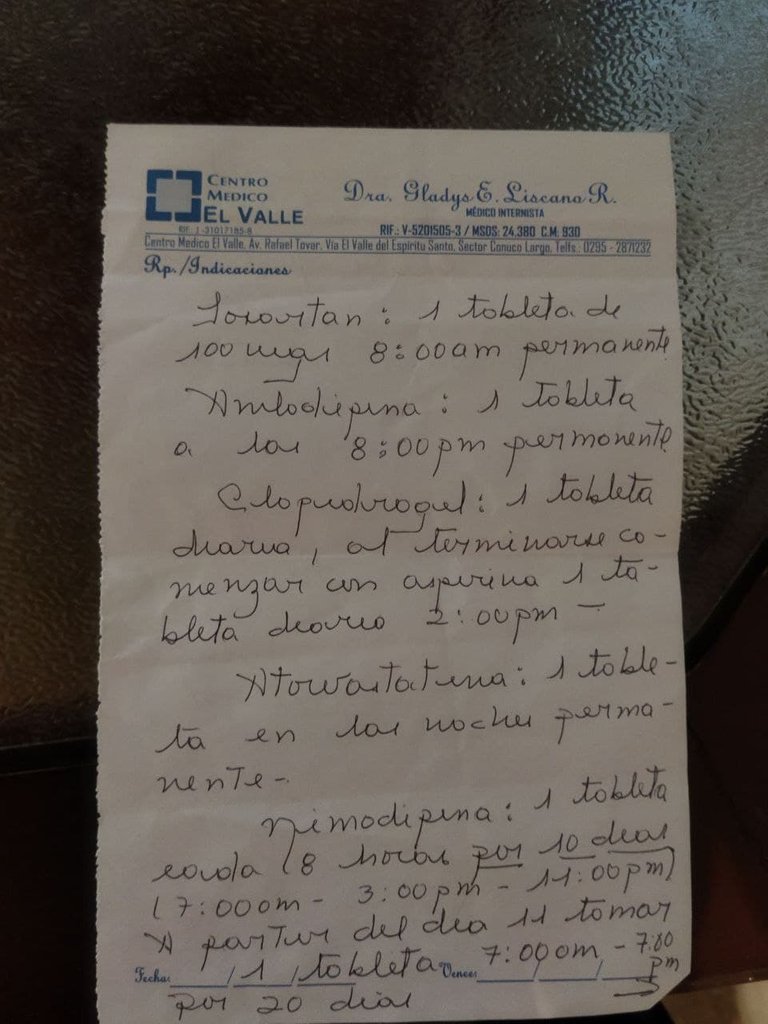 CENTRO
MEDICO
EL VALLE
RIF: J-31017185-8
Dra. Gladys E. Liscano R.
MÉDICO INTERNISTA
RIF.: V-5201505-3 / MSDS: 24.380 C.M: 930
Centro Medico El Valle, Av. Rafael Tovar, Via El Valle del Espiritu Santo, Sector Conuco Largo, Telfs.: 0295 - 2871232
Rp./Indicaciones
Losartan: 1 tableta de
100 mgs 8:00am permanente
Amlodipina: 1 tableta
a las 8:00pm permanente
Clopidrogel: 1 tableta
diaria, al terminarse co-
menzar con aspirina 1 ta-
bleta diario 2:00pm -
Atorvastatina: 1 table-
ta en las noches perma-
nente-
Nimodipina: 1 tableta
cada 8 horas por 10 dias
(7:00am - 3:00pm - 11:00pm)
A partir del dia 11 tomar
1 tableta 7:00am - 7:00 pm
Fecha: / / Vence: / /
por 20 dias